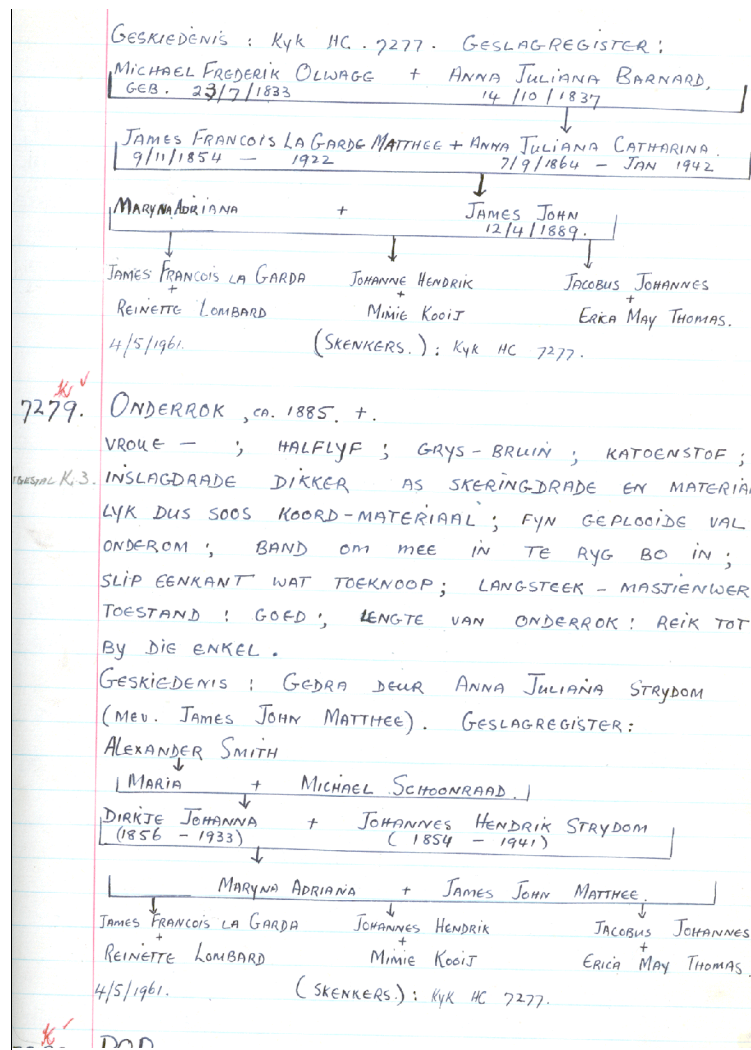 GESKIEDENIS : KYK HC. 7277. GESLAGREGISTER :
MICHAEL FREDERIK OLWAGE + ANNA JULIANA BARNARD,
GEB. 23/7/1833 14/10/1837
JAMES FRANCOIS LA GARDE MATTHEE + ANNA JULIANA CATHARINA.
9/11/1854 — 1922 7/9/1864 — JAN 1942
MARYNA ADRIANA + JAMES JOHN
12/4/1889.
JAMES FRANCOIS LA GARDA JOHANNE HENDRIK JACOBUS JOHANNES
+ + +
REINETTE LOMBARD MIMIE KOOIJ ERICA MAY THOMAS.
4/5/1961. (SKENKERS.) : KYK HC 7277.
7279. ONDERROK, CA. 1885. +.
VROUE — ; HALFLYF ; GRYS-BRUIN ; KATOENSTOF ;
K.3. INSLAGDRADE DIKKER AS SKERINGDRADE EN MATERIA
LYK DUS SOOS KOORD-MATERIAAL ; FYN GEPLOOIDE VAL
ONDEROM ; BAND OM MEE IN TE RYG BO IN ;
SLIP EENKANT WAT TOEKNOOP ; LANGSTEEK - MASJIENWER
TOESTAND : GOED ; LENGTE VAN ONDERROK : REIK TOT
BY DIE ENKEL.
GESKIEDENIS : GEDRA DEUR ANNA JULIANA STRYDOM
(MEV. JAMES JOHN MATTHEE). GESLAGREGISTER :
ALEXANDER SMITH
MARIA + MICHAEL SCHOONRAAD.
DIRKJE JOHANNA + JOHANNES HENDRIK STRYDOM
(1856 - 1933) (1854 - 1941)
MARYNA ADRIANA + JAMES JOHN MATTHEE.
JAMES FRANCOIS LA GARDA JOHANNES HENDRIK JACOBUS JOHANNES
+ + +
REINETTE LOMBARD MIMIE KOOIJ ERICA MAY THOMAS.
4/5/1961. (SKENKERS.) : KYK HC 7277.